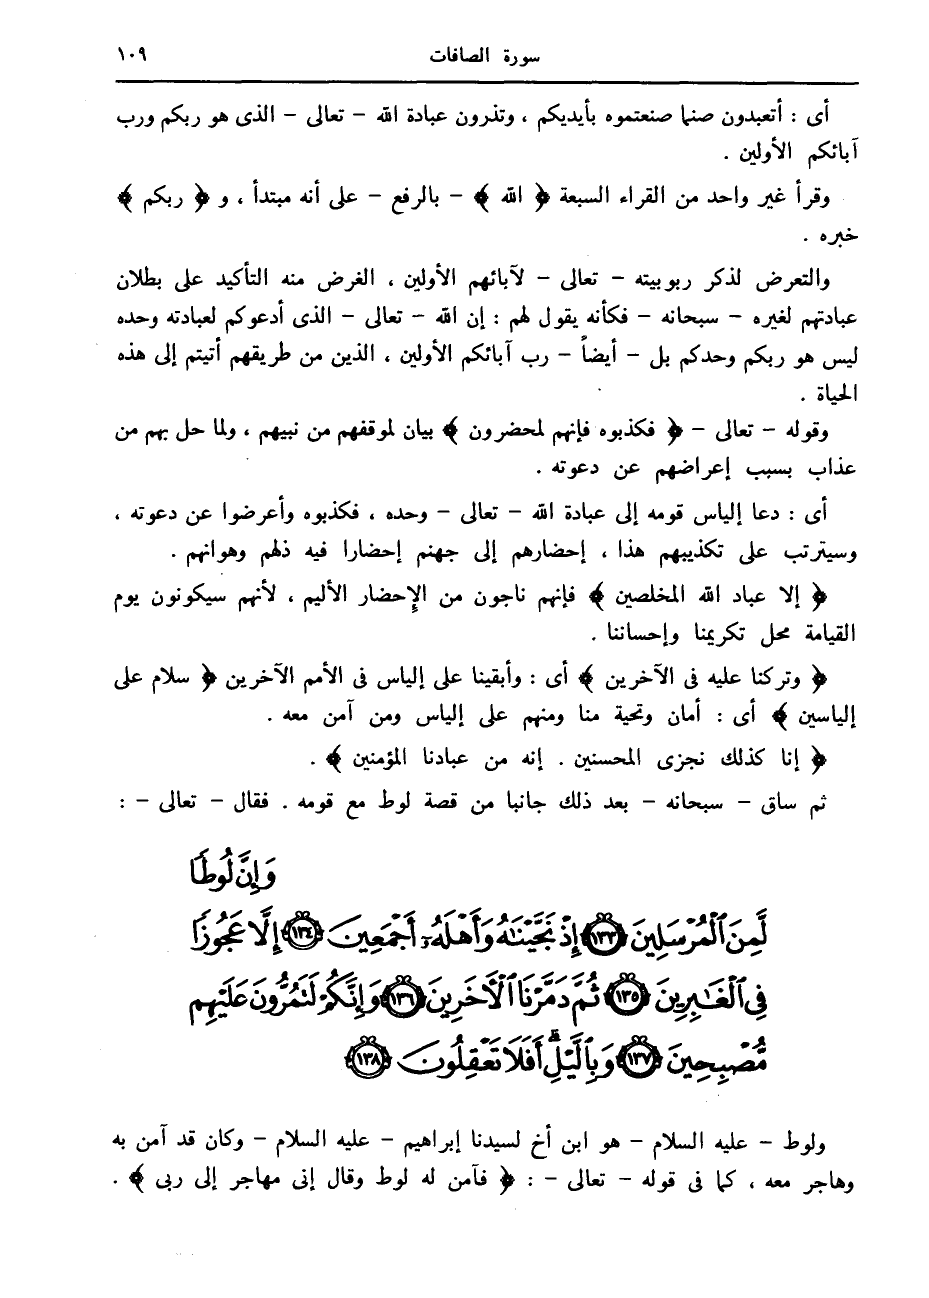 سورة الصافات ١٠٩
أى : أتعبدون صنما صنعتموه بأيديكم ، وتذرون عبادة الله – تعالى – الذى هو ربكم ورب
آبائكم الأولين .
وقرأ غير واحد من القراء السبعة ﴿ الله ﴾ – بالرفع – على أنه مبتدأ ، و ﴿ ربكم ﴾
خبره .
والتعرض لذكر ربوبيته – تعالى – لآبائهم الأولين ، الغرض منه التأكيد على بطلان
عبادتهم لغيره – سبحانه – فكأنه يقول لهم : إن الله – تعالى – الذى أدعوكم لعبادته وحده
ليس هو ربكم وحدكم بل – أيضاً – رب آبائكم الأولين ، الذين من طريقهم أتيتم إلى هذه
الحياة .
وقوله – تعالى – ﴿ فكذبوه فإنهم لمحضرون ﴾ بيان لموقفهم من نبيهم ، ولما حل بهم من
عذاب بسبب إعراضهم عن دعوته .
أى : دعا إلياس قومه إلى عبادة الله – تعالى – وحده ، فكذبوه وأعرضوا عن دعوته ،
وسيترتب على تكذيبهم هذا ، إحضارهم إلى جهنم إحضارا فيه ذلهم وهوانهم .
﴿ إلا عباد الله المخلصين ﴾ فإنهم ناجون من الإحضار الأليم ، لأنهم سيكونون يوم
القيامة محل تكريمنا وإحساننا .
﴿ وتركنا عليه فى الآخرين ﴾ أى : وأبقينا على إلياس فى الأمم الآخرين ﴿ سلام على
إلياسين ﴾ أى : أمان وتحية منا ومنهم على إلياس ومن آمن معه .
﴿ إنا كذلك نجزى المحسنين . إنه من عبادنا المؤمنين ﴾ .
ثم ساق – سبحانه – بعد ذلك جانبا من قصة لوط مع قومه . فقال – تعالى – :
وَإِنَّ لُوطًا
لَّمِنَ ٱلْمُرْسَلِينَ ١٣٣ إِذْ نَجَّيْنَٰهُ وَأَهْلَهُۥٓ أَجْمَعِينَ ١٣٤ إِلَّا عَجُوزًا
فِى ٱلْغَٰبِرِينَ ١٣٥ ثُمَّ دَمَّرْنَا ٱلْءَاخَرِينَ ١٣٦ وَإِنَّكُمْ لَتَمُرُّونَ عَلَيْهِم
مُّصْبِحِينَ ١٣٧ وَبِٱلَّيْلِ ۗ أَفَلَا تَعْقِلُونَ ١٣٨
ولوط – عليه السلام – هو ابن أخ لسيدنا إبراهيم – عليه السلام – وكان قد آمن به
وهاجر معه ، كما فى قوله – تعالى – : ﴿ فآمن له لوط وقال إنى مهاجر إلى ربى ﴾ .